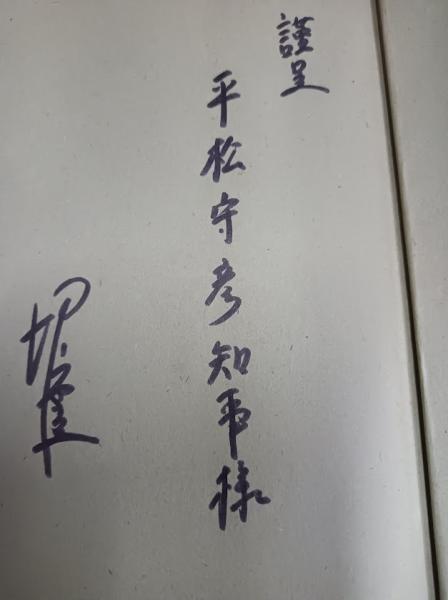 謹呈
平松守彦知事様